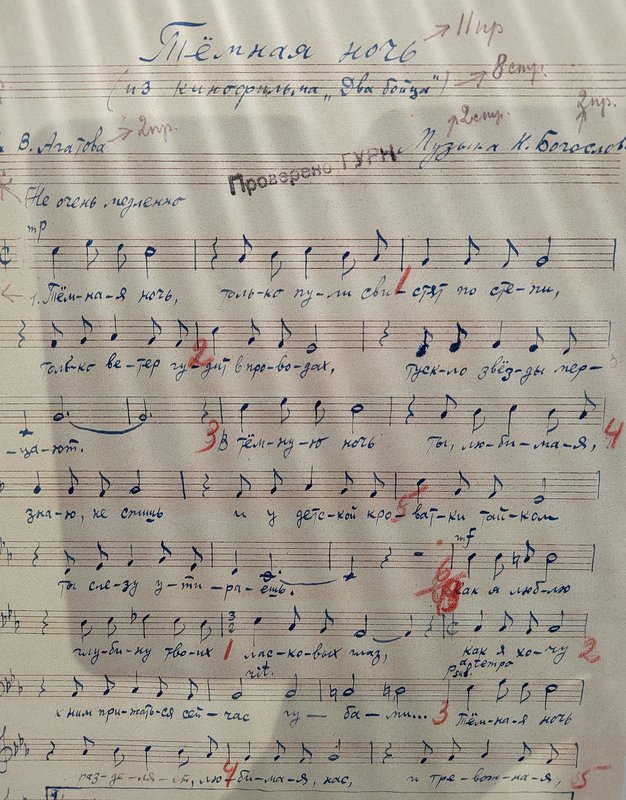 Тёмная ночь → 11 пр
(из кинофильма „Два бойца") → 8 стр.
В. Агатова → 2 пр. Музыка Н. Богослов 2 стр. 2 пр.
Проверено ГУРК
Не очень медленно
mp
1. Тём-на-я ночь, толь-ко пу-ли сви-стят по сте-пи, 1
толь-ко ве-тер гу-дит в про-во-дах, туск-ло звёз-ды мер- 2
-ца-ют. 3 В тём-ну-ю ночь ты, лю-би-ма-я, 4
зна-ю, не спишь и у детс-кой кро-ват-ки тай-ком 5
mf
ты сле-зу у-ти-ра-ешь. Как я люб-лю
глу-би-ну тво-их 1 лас-ко-вых глаз, как я хо-чу 2
rit. a tempo
к ним при-жать-ся сей-час гу-ба-ми... 3 Тём-на-я ночь
раз-де-ля-ет, лю-би-ма-я, нас, и тре-вож-на-я, 4 5
1.